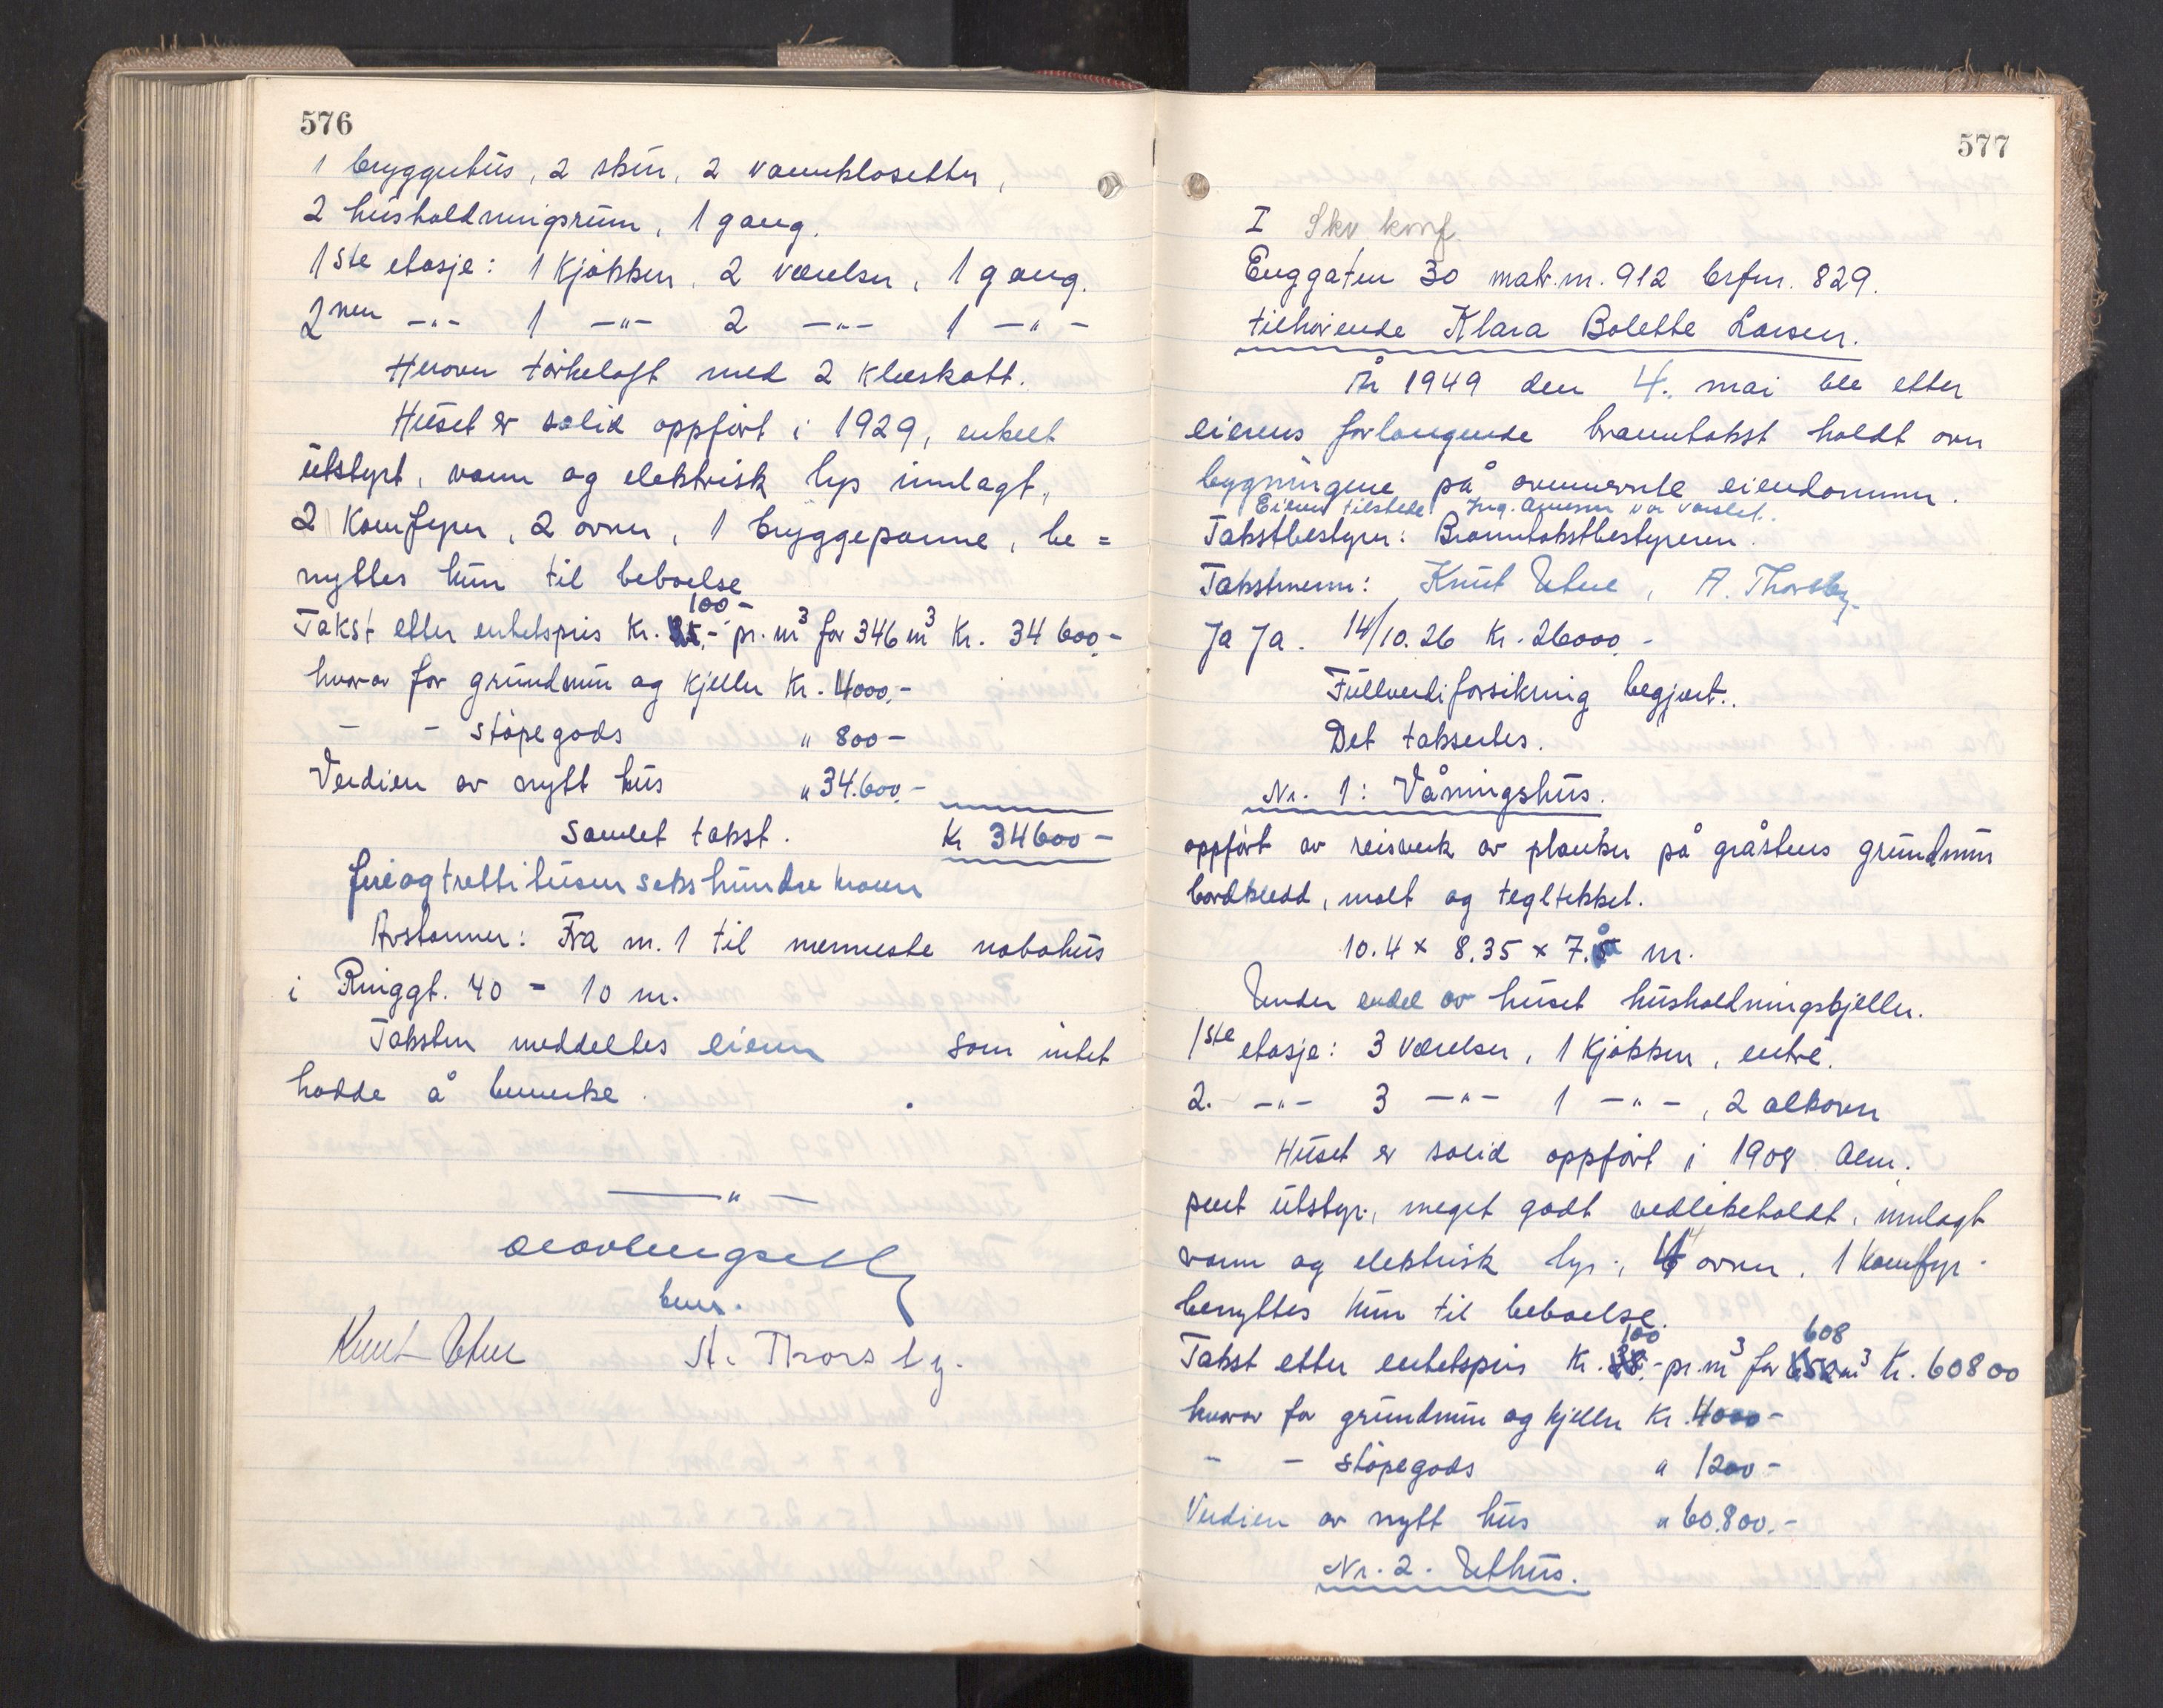 576
1 bryggehus, 2 skur, 2 vannklosetter,
2 husholdningsrum, 1 gang.
1ste etasje: 1 kjøkken, 2 værelser, 1 gang.
2nen -"- 1 -"- 2 -"- 1 -"-
Herover tørkeloft med 2 kleskott.
Huset er solid oppført i 1929, enkelt
utstyrt, vann og elektrisk lys innlagt,
2 komfyrer, 2 ovner, 1 bryggepanne, be=
nyttes kun til beboelse
100-
Takst etter enhetspris kr. 85,- pr. m3 for 346 m3 kr. 34 600,-
hvorav for grundmur og kjeller kr. 4000,-
- - støpegods " 800-
Verdien av nytt hus " 34.600,-
Samlet takst. Kr 34600-
fireogtrettitusen sekshundre kroner
Avstanner: Fra nr. 1 til nermeste nabohus
i Ringgt. 40 - 10 m.
Taksten meddeltes eieren som intet
hadde å bemerke.
-"-
best.
Knut Utne A. Thorsby.
577
I Skv konf.
Enggaten 30 matr.nr. 912 brfnr. 829.
tilhørende Klara Bolette Larsen.
År 1949 den 4. mai ble etter
eierens forlangende branntakst holdt over
bygningene på ovennevnte eiendommer.
Eieren tilstede Ing. Arnesen var varslet.
Takstbestyrer: Branntakstbestyreren.
Takstmenn: Knut Utne, A. Thorsby.
Ja Ja. 14/10.26 kr. 26000,-
Fullverdiforsikring begjært.
Det takseres.
Nr. 1: Våningshus.
oppført av reisverk av planker på gråstens grundmur
bordkledd, malt og tegltekket.
10.4 x 8.35 x 7. m.
Under endel av huset husholdningskjeller.
1ste etasje: 3 værelser, 1 kjøkken, entré.
2. -"- 3 -"- 1 -"-, 2 alkover
Huset er solid oppført i 1908. Alm.
pent utstyr, meget godt vedlikeholdt, innlagt
vann og elektrisk lys, 4 ovner, 1 komfyr
benyttes kun til beboelse.
100 608
Takst etter enhetspris kr. 88,- pr. m3 for 652 m3 kr. 60800
hvorav for grundmur og kjeller kr. 4000-
- - støpegods " 1200-
Verdien av nytt hus " 60.800.-
Nr. 2. Uthus.